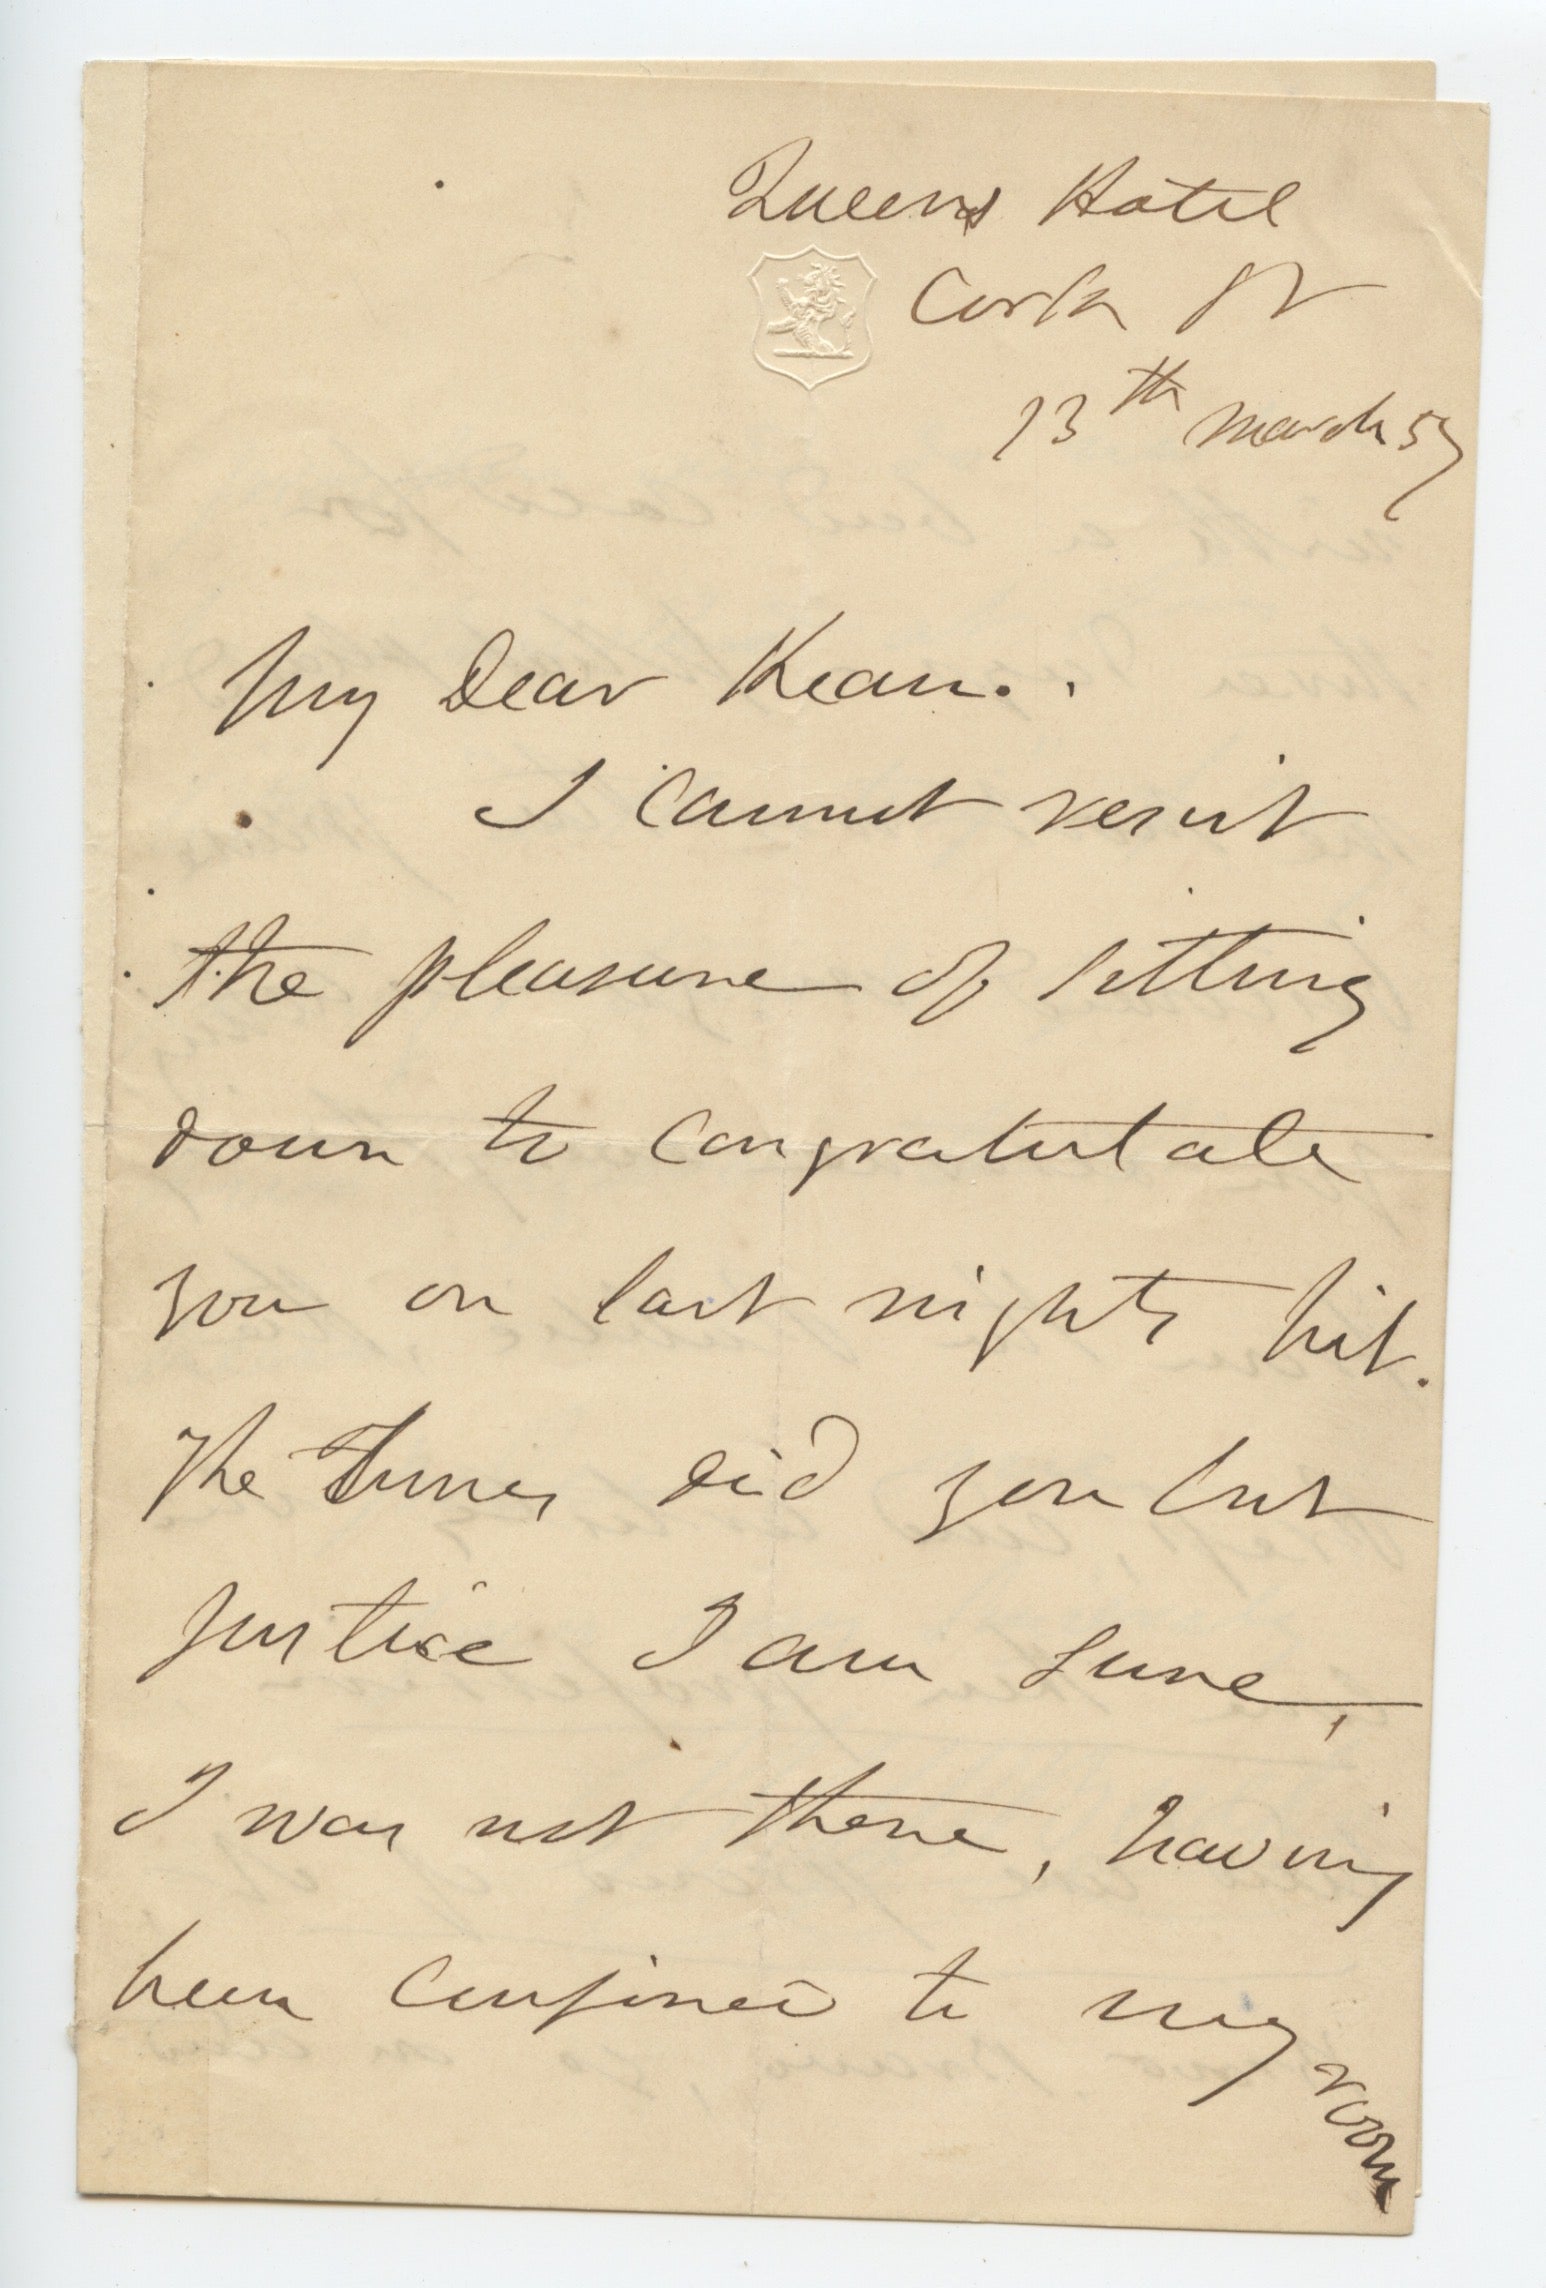 Queens Hotel
Cork St
13th March 57
My Dear Kean..
I cannot resist
the pleasure of sitting
down to congratulate
you on last nights hit.
The Times did you but
justice I am sure,
I was not there, having
been confined to my
room